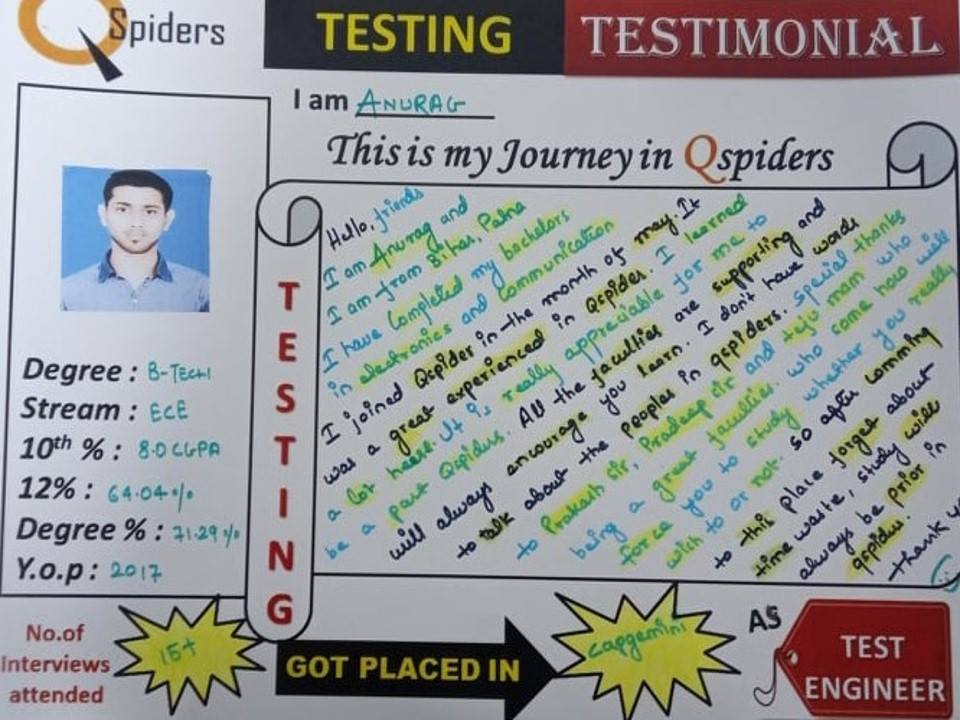 QSpiders
TESTING TESTIMONIAL
I am ANURAG
This is my Journey in Qspiders
Degree : B-TECH
Stream : ECE
10th % : 8.0 CGPA
12% : 64.04%
Degree % : 71.29%
Y.o.p : 2017
TESTING
Hello, friends
I am Anurag and
I am from Bihar, Patna
I have completed my bachelors
in electronics and communication
I joined Qspider in the month of may. It
was a great experienced in Qspider. I learned
a lot heere. It is really appreciable for me to
be a part Qspidus. All the faculties are supporting and
will always encourage you learn. I don't have words
to talk about the peoples in qspiders. special thanks
to Prakash sir, Pradeep sir and teju mam who
being a great faculties. who come how will
force you to study whether you really
wish to or not. so after comming
to this place forget about
time waste, study will
always be prior in
qspidus.
thank
No.of
Interviews
attended
15+
GOT PLACED IN
capgemini
AS
TEST
ENGINEER